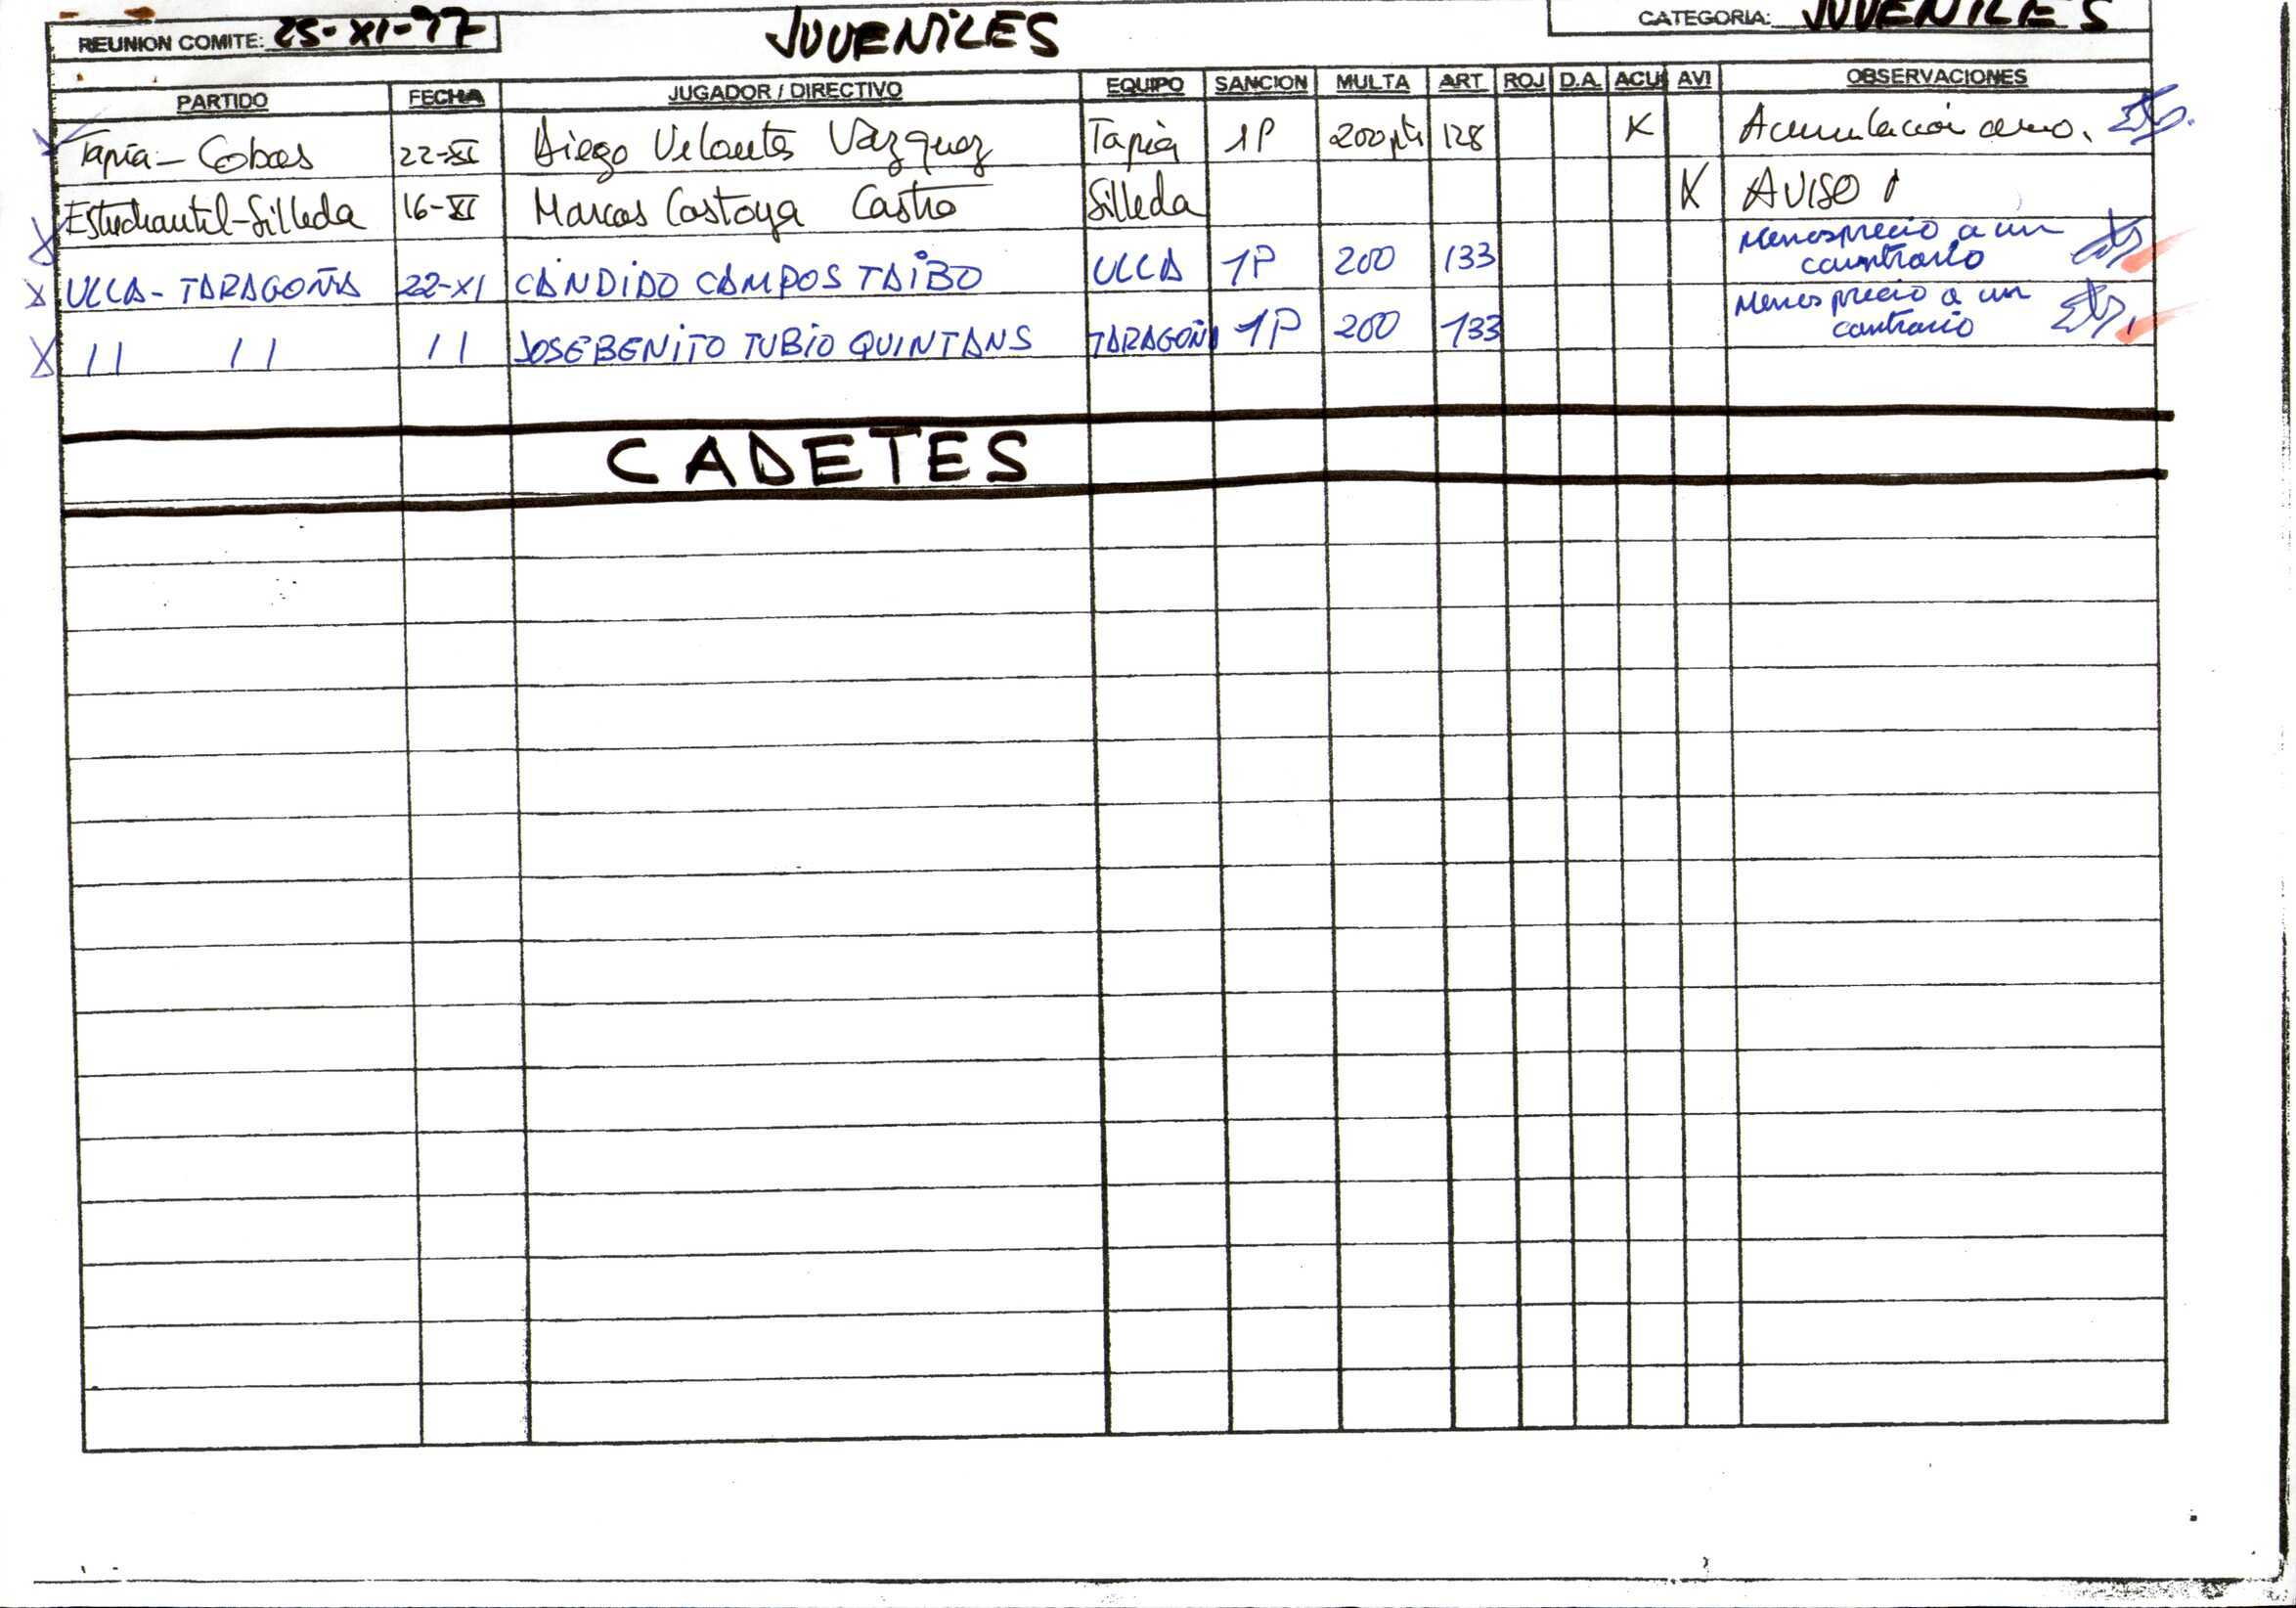 REUNION COMITE: 25-XI-97 JUVENILES CATEGORIA: JUVENILES
PARTIDO FECHA JUGADOR / DIRECTIVO EQUIPO SANCION MULTA ART ROJ D.A. ACU AVI OBSERVACIONES
Tapia - Cobas 22-XI Diego Vazquez Tapia 1P 200 pts 128 X Acumulación
Estudiantil-Silleda 16-XI Marcos Castoya Castro Silleda X AVISO 1
ULLA - TARAGOÑA 22-XI CANDIDO CAMPOS TAIBO ULLA 1P 200 133 Menosprecio a un
contrario
11 11 11 JOSE BENITO TUBIO QUINTANS TARAGOÑA 1P 200 133 Menosprecio a un
contrario
CADETES